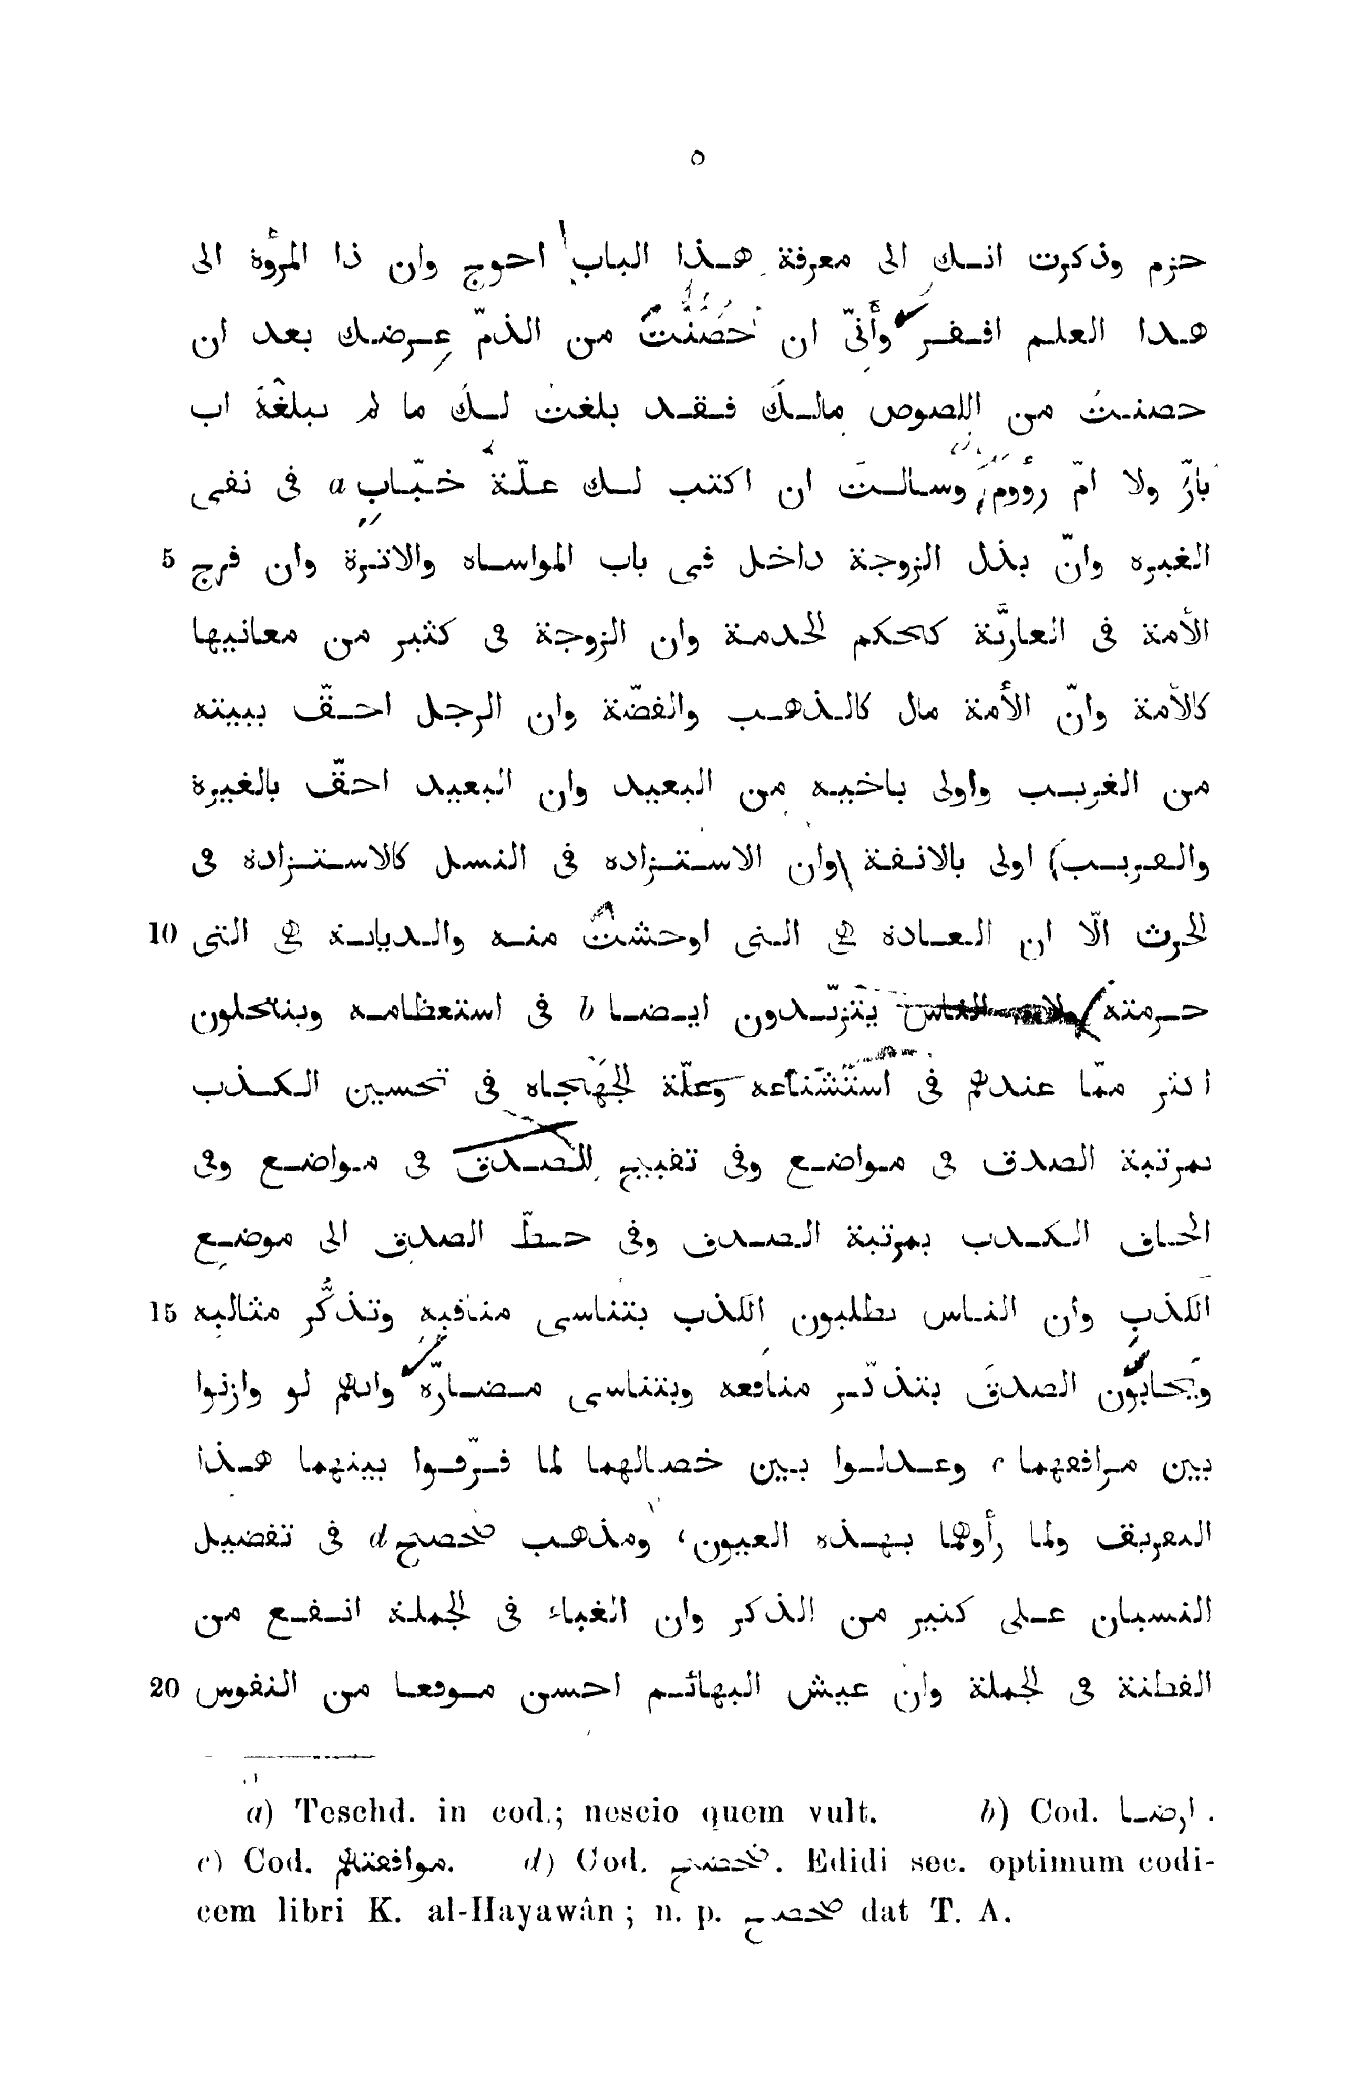 ٥
حزم وذكرت انك الى معرفة هذا الباب احوج وان ذا المرؤة الى
هذا العلم افقر وأنّى ان حصّنت من الذمّ عرضك بعد ان
حصنت من اللصوص مالك فقد بلغت لك ما لم يبلغه اب
بارّ ولا امّ رؤوم وسالت ان اكتب لك علّة خبّاب a فى نفى
5 الغيره وانّ بذل الزوجة داخل فى باب المواساه والاثرة وان فرج
الأمة فى العاريّة كحكم الخدمة وان الزوجة فى كثير من معانيها
كالأمة وانّ الأمة مال كالذهب والفضّة وان الرجل احقّ ببيته
من الغريب واولى باخيه من البعيد وان البعيد احقّ بالغيرة
والقريب اولى بالانفة وان الاستزاده فى النسل كالاستزادة فى
10 الحرث الّا ان العادة هى التى اوحشت منه والديانة هى التى
حرمته ولان الناس يتزيّدون ايضا b فى استعظامه وينتحلون
اكثر ممّا عندهم فى استشناعه وعلّة الجهجاه فى تحسين الكذب
بمرتبة الصدق فى مواضع وفى تقبيح الصدق فى مواضع وفى
الحاق الكذب بمرتبة الصدق وفى حطّ الصدق الى موضع
15 الكذب وان الناس يظلمون الكذب بتناسى مناقبه وتذكّر مثالبه
ويحابون الصدق بتذكّر منافعه وبتناسى مضارّه وانهم لو وازنوا
بين مرافقهما c وعدلوا بين خصالهما لما فرّقوا بينهما هذا
التفريق ولما رأوهما بهذه العيون، ومذهب صحصح d فى تفضيل
النسيان على كثير من الذكر وان الغباء فى الجملة انفع من
20 الفطنة فى الجملة وان عيش البهائم احسن موقعا من النفوس
a) Teschd. in cod.; nescio quem vult. b) Cod. ارضا.
c) Cod. موافقتهم. d) Cod. صحضح. Edidi sec. optimum codi-
cem libri K. al-Hayawân; n. p. صحصح dat T. A.